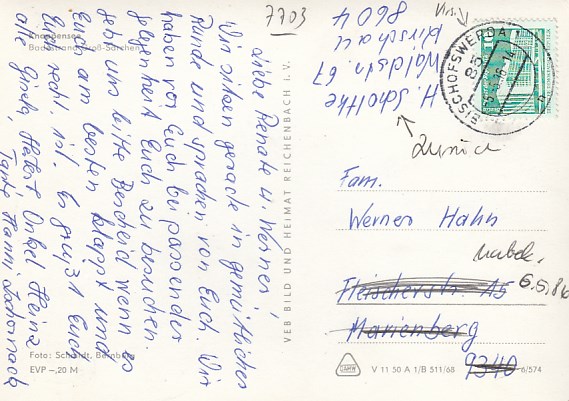 Knappensee
Badestrand Groß-Särchen
7703
Liebe Renate u. Werner,
Wir sitzen gerade in gemütlicher
Runde und sprachen von Euch. Wir
haben vor Euch bei passender
gelegenheit Euch zu besuchen.
geb uns bitte Bescheid wenn es
Euch am besten klappt und
es recht ist. Es grüßt Euch
alle Gisela, Onkel Heinz
Tante Hanni,
Foto: Schmidt, Bernburg
EVP –,20 M
VEB BILD UND HEIMAT REICHENBACH I. V.
H. Scholtke
Waldstr. 67
Kirschau
8604
BISCHOFSWERDA 1
85
Zurück
Fam.
Werner Hahn
Fleischerstr. 15
6.5.86
Marienberg
9340
V 11 50 A 1/B 511/68
6/574